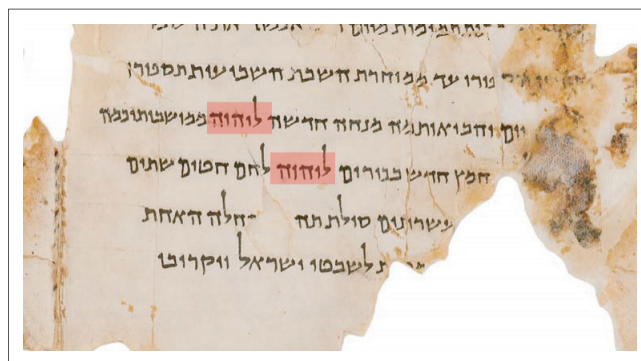 תמימות
עד ממוחרת השבת השביעית תספורו
יום והביאותמה מנחה חדשה ליהוה ממושבותיכמה
חמץ חדש בכורים ליהוה לחם חטים שתים
עשרונים סולת תהיה החלה האחת
לשבטי ישראל ויקריבו